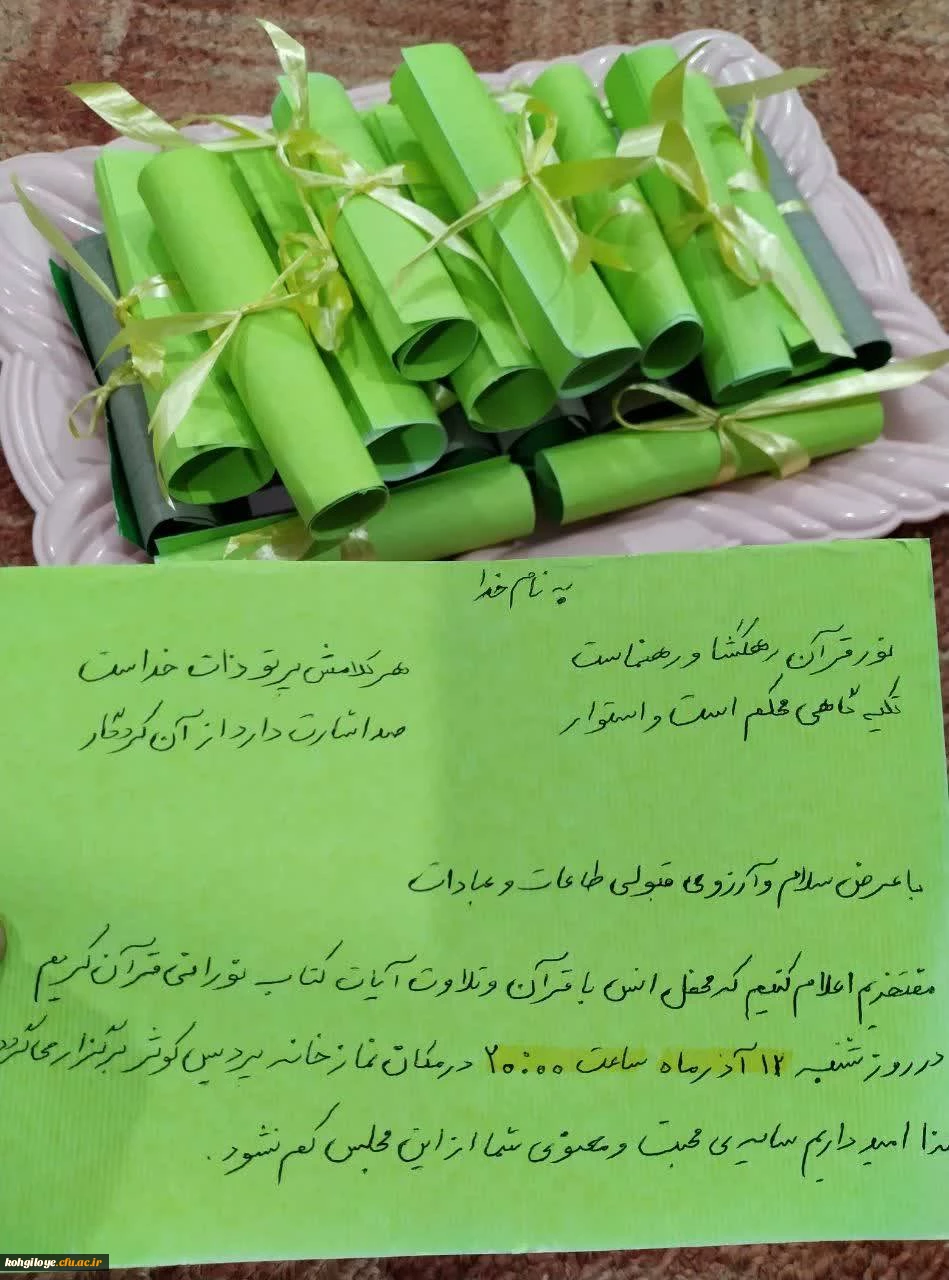 به نام خدا
نور قرآن رهگشا و رهنماست هر کلامش پرتو ذات خداست
تکیه گاهی محکم است و استوار صد اشارت دارد از آن کردگار
با عرض سلام و آرزوی قبولی طاعات و عبادات
مفتخریم اعلام کنیم که محفل انس با قرآن و تلاوت آیات کتاب نورانی قرآن کریم
در روز شنبه ۱۲ آذر ماه ساعت ۲۰:۰۰ در مکان نماز خانه پردیس کوثر برگزار می گردد
لذا امید داریم سایه ی محبت و معنوی شما از این مجلس کم نشود.
kohgiloye.cfu.ac.ir